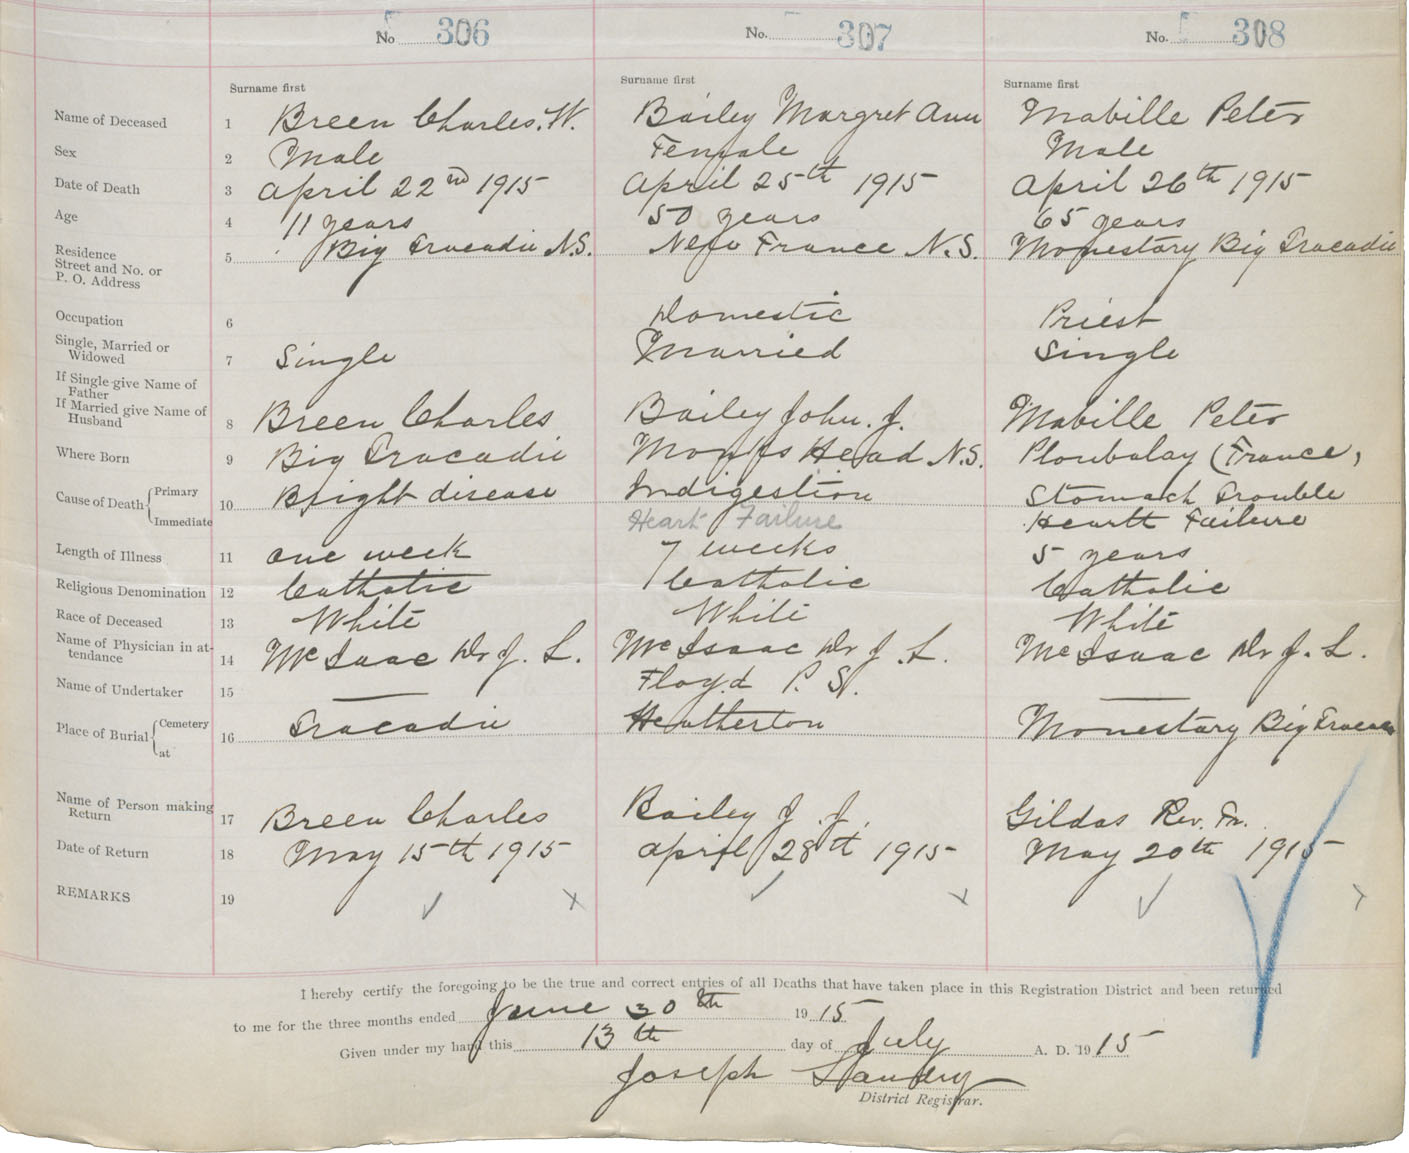 No 306 No. 307 No. 308
Surname first Surname first Surname first
Name of Deceased 1 Breen Charles. W. Bailey Margret Ann Mabille Peter
Sex 2 Male Female Male
Date of Death 3 April 22nd 1915 April 25th 1915 April 26th 1915
Age 4 11 years 50 years 65 years
Residence Street and No. or P. O. Address 5 Big Tracadie N.S. New France N.S. Monestary Big Tracadie
Occupation 6 Domestic Priest
Single, Married or Widowed 7 Single Married Single
If Single give Name of Father
If Married give Name of Husband 8 Breen Charles Bailey John. J. Mabille Peter
Where Born 9 Big Tracadie Monks Head N.S. Ploubalay (France,
Cause of Death { Primary 10 Bright disease Indigestion Stomach Trouble
Immediate Heart Failure Heartt Failure
Length of Illness 11 one week 7 weeks 5 years
Religious Denomination 12 Catholic Catholic Catholic
Race of Deceased 13 White White White
Name of Physician in attendance 14 McIsaac Dr J. L. McIsaac Dr J. L. McIsaac Dr J. L.
Name of Undertaker 15 — Floyd P. S. —
Place of Burial { Cemetery at 16 Tracadie Heatherton Monestary Big Tracadie
Name of Person making Return 17 Breen Charles Bailey J. J. Gildas Rev. Fr.
Date of Return 18 May 15th 1915 April 28th 1915 May 20th 1915
REMARKS 19
I hereby certify the foregoing to be the true and correct entries of all Deaths that have taken place in this Registration District and been returned
to me for the three months ended June 30th 1915
Given under my hand this 13th day of July A. D. 1915
Joseph Landry
District Registrar.